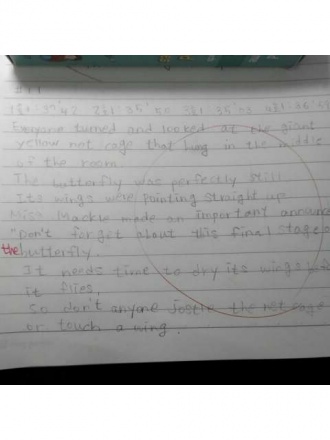 Everyone turned and looked at the giant
yellow net cage that hung in the middle
of the room
The butterfly was perfectly still
Its wings were pointing straight up
Miss Mackle made an important announce
"Don't forget about this final stage o
the butterfly.
It needs time to dry its wings
it flies,
so don't anyone jostle the net cage
or touch a wing.